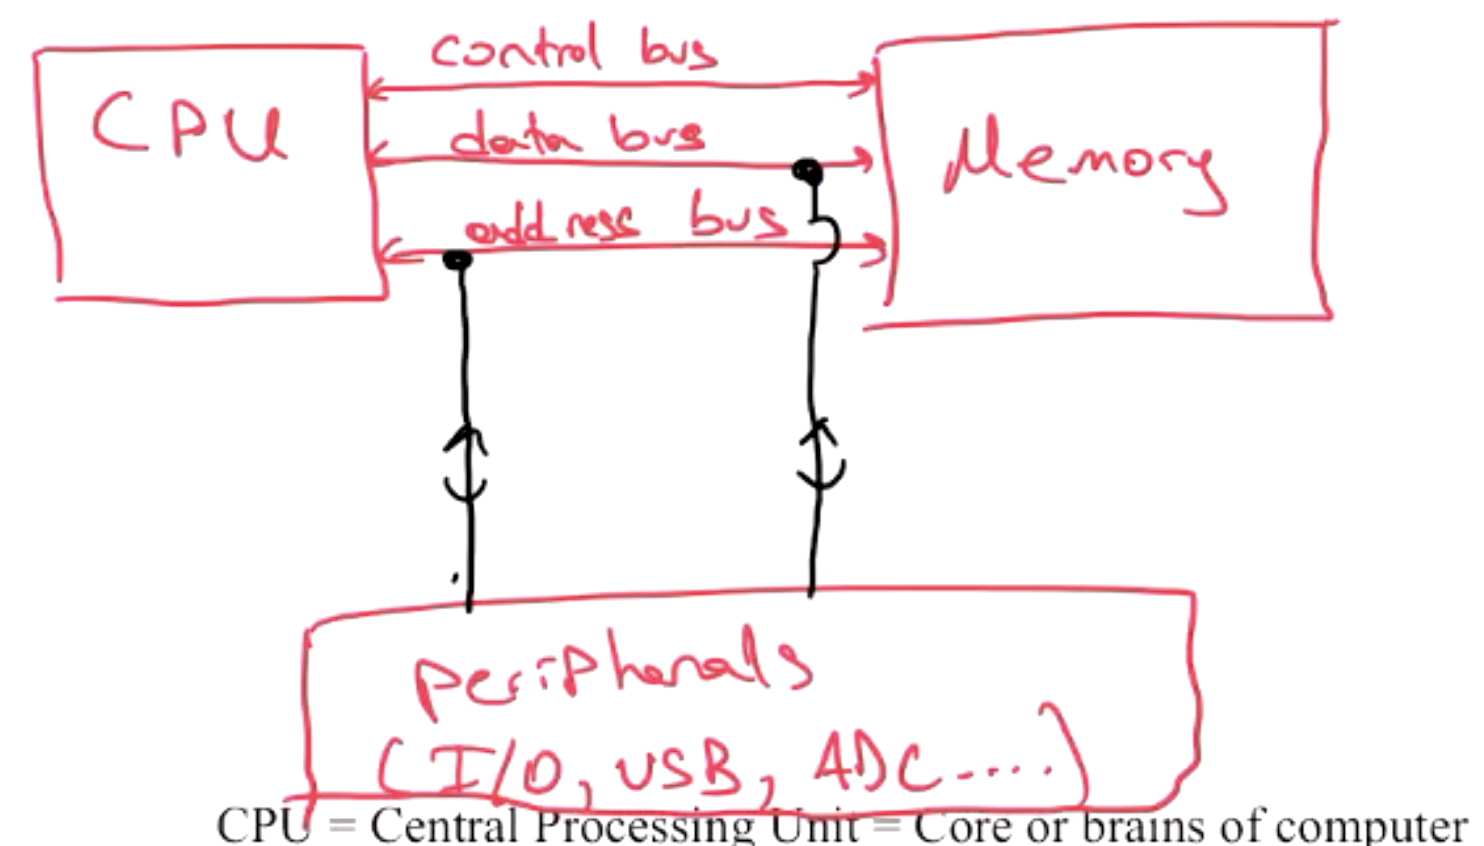 control bus
CPU
data bus
Memory
address bus
peripherals
(I/O, USB, ADC.....)
CPU = Central Processing Unit = Core or brains of computer